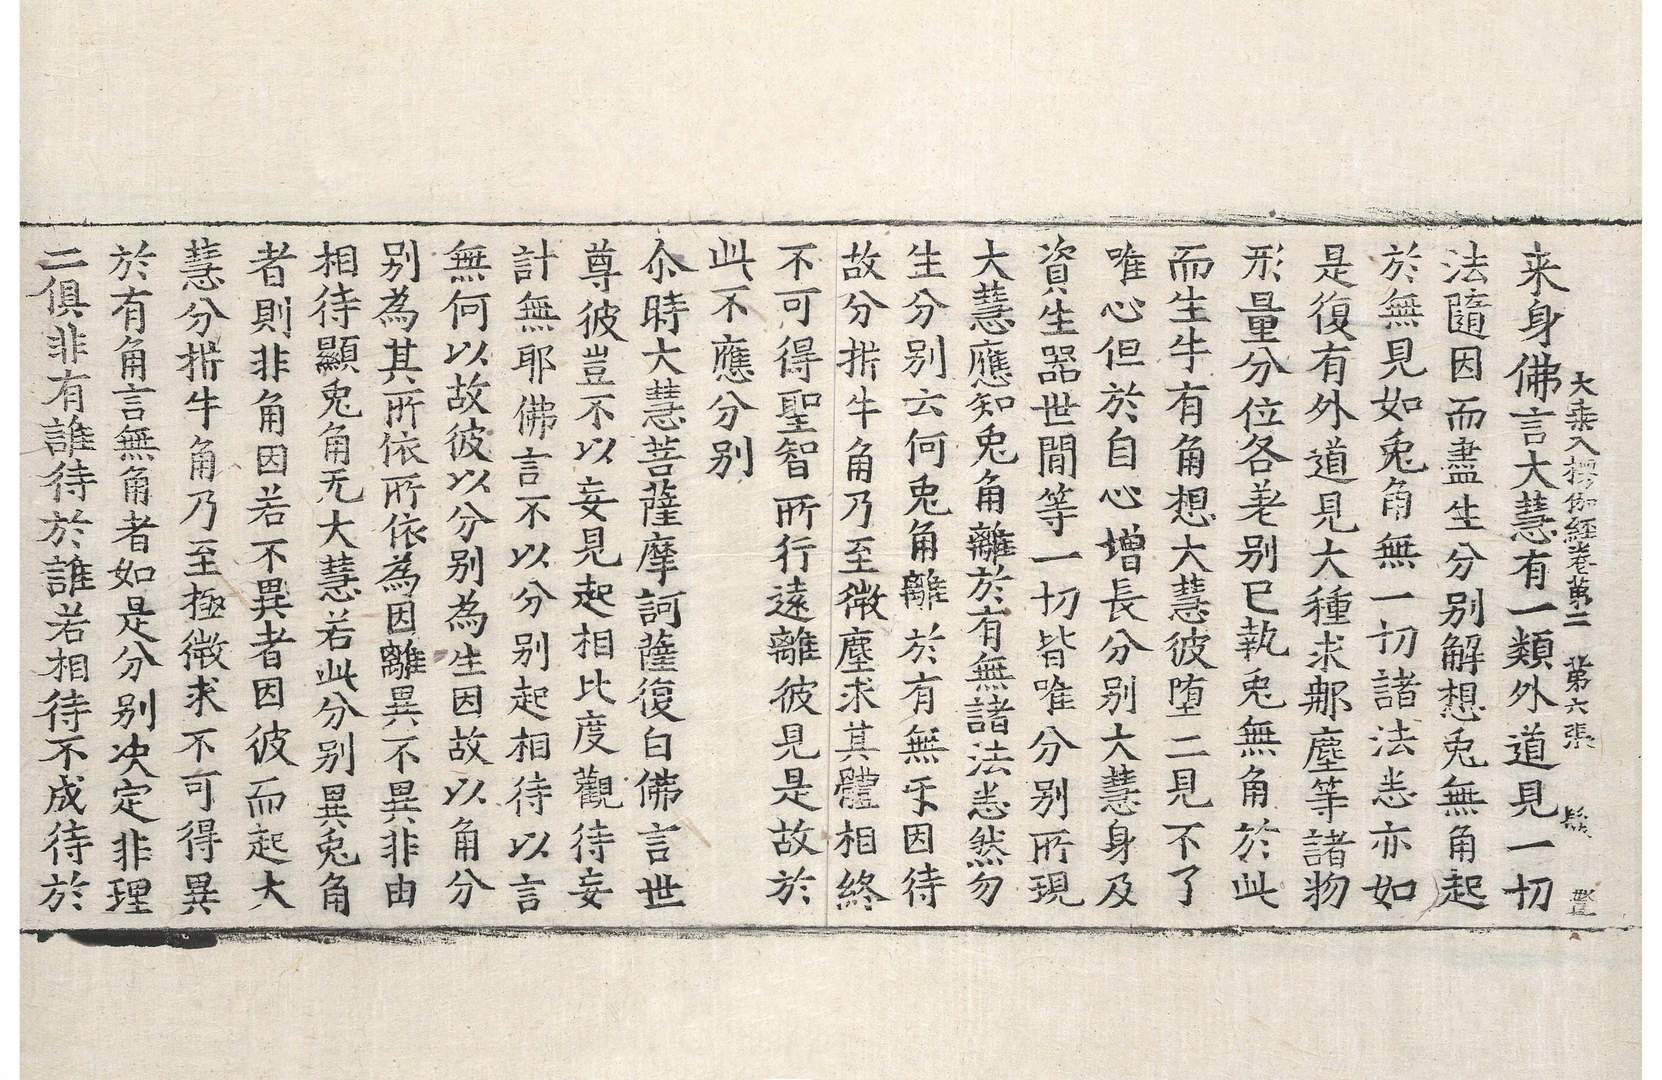 大乗入楞伽經卷第二　第六張　髮
来身佛言大慧有一類外道見一切
法隨因而盡生分别解想兎無角起
於無見如兎角無一切諸法悉亦如
是復有外道見大種求那塵等諸物
形量分位各差别已執兎無角於此
而生牛有角想大慧彼堕二見不了
唯心但於自心增長分别大慧身及
資生器世間等一切皆唯分别所現
大慧應知兎角離於有無諸法悉然勿
生分别云何兎角離於有無互因待
故分析牛角乃至微塵求其體相終
不可得聖智所行遠離彼見是故於
此不應分别
尒時大慧菩薩摩訶薩復白佛言世
尊彼豈不以妄見起相比度觀待妄
計無耶佛言不以分别起相待以言
無何以故彼以分别為生因故以角分
别為其所依所依為因離異不異非由
相待顯兎角无大慧若此分别異兎角
者則非角因若不異者因彼而起大
慧分析牛角乃至極微求不可得異
於有角言無角者如是分别决定非理
二俱非有誰待於誰若相待不成待於